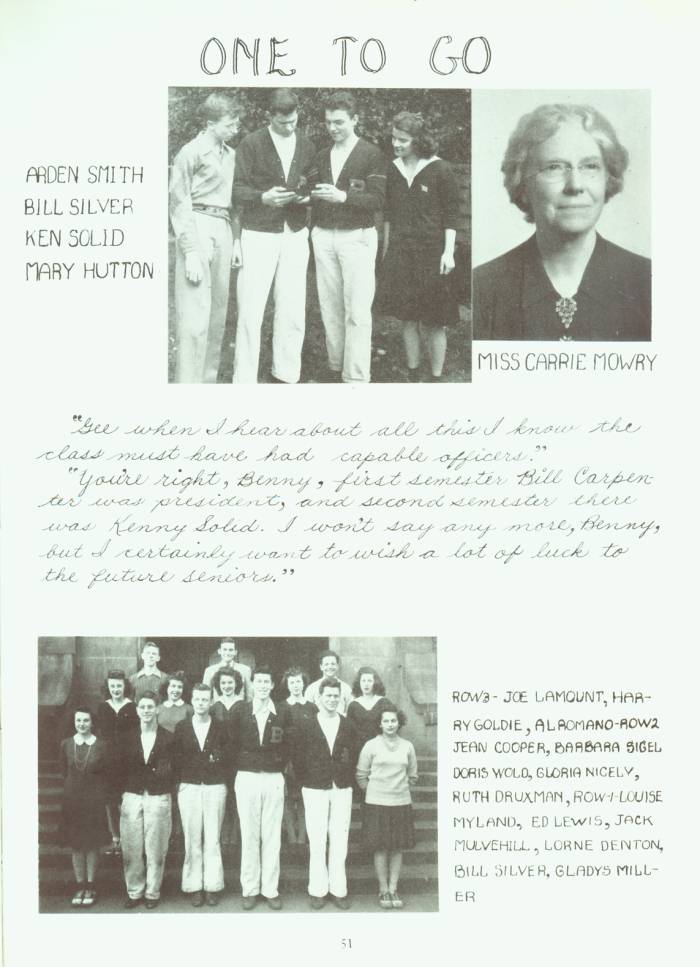 ONE TO GO
ARDEN SMITH
BILL SILVER
KEN SOLID
MARY HUTTON
MISS CARRIE MOWRY
"Gee when I hear about all this I know the
class must have had capable officers."
"You're right, Benny, first semester Bill Carpen-
ter was president, and second semester there
was Kenny Solid. I won't say any more, Benny,
but I certainly want to wish a lot of luck to
the future seniors."
ROW3- JOE LAMOUNT, HAR-
RY GOLDIE, AL ROMANO-ROW2
JEAN COOPER, BARBARA SIGEL
DORIS WOLD, GLORIA NICELY,
RUTH DRUXMAN, ROW-1-LOUISE
MYLAND, ED LEWIS, JACK
MULVEHILL, LORNE DENTON,
BILL SILVER, GLADYS MILL-
ER
51